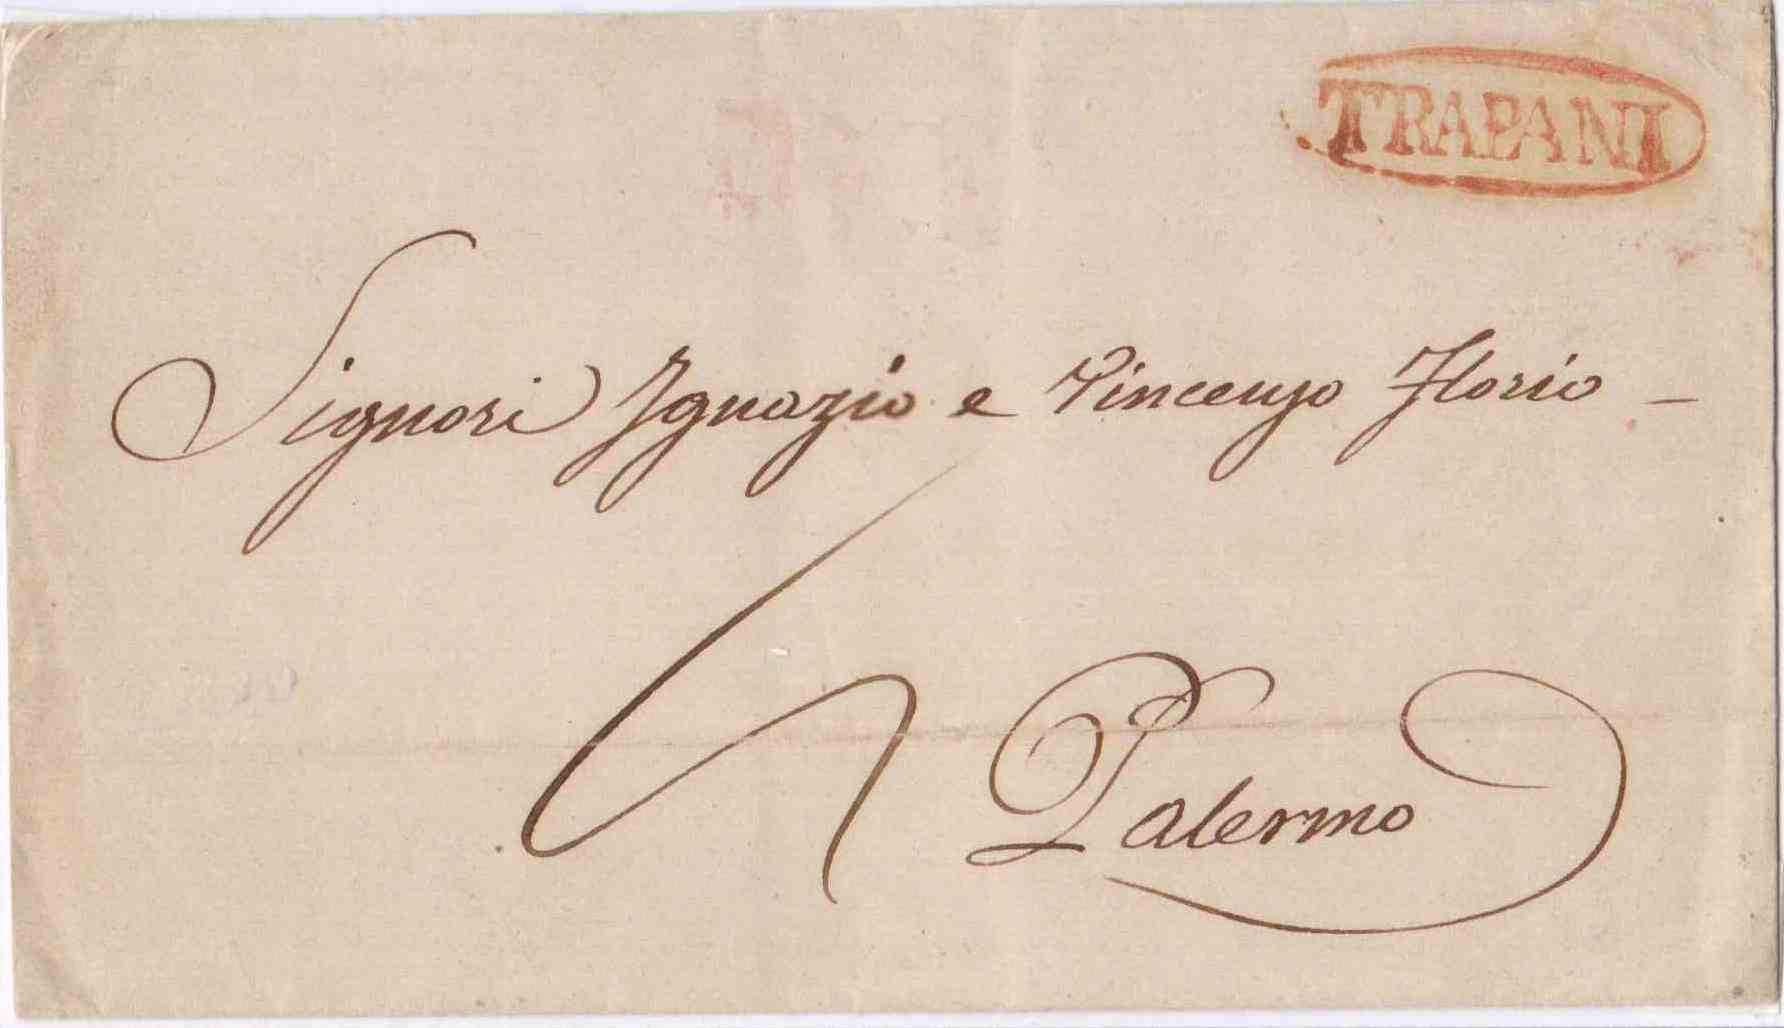 TRAPANI
Signori Ignazio e Vincenzo Florio -
Palermo